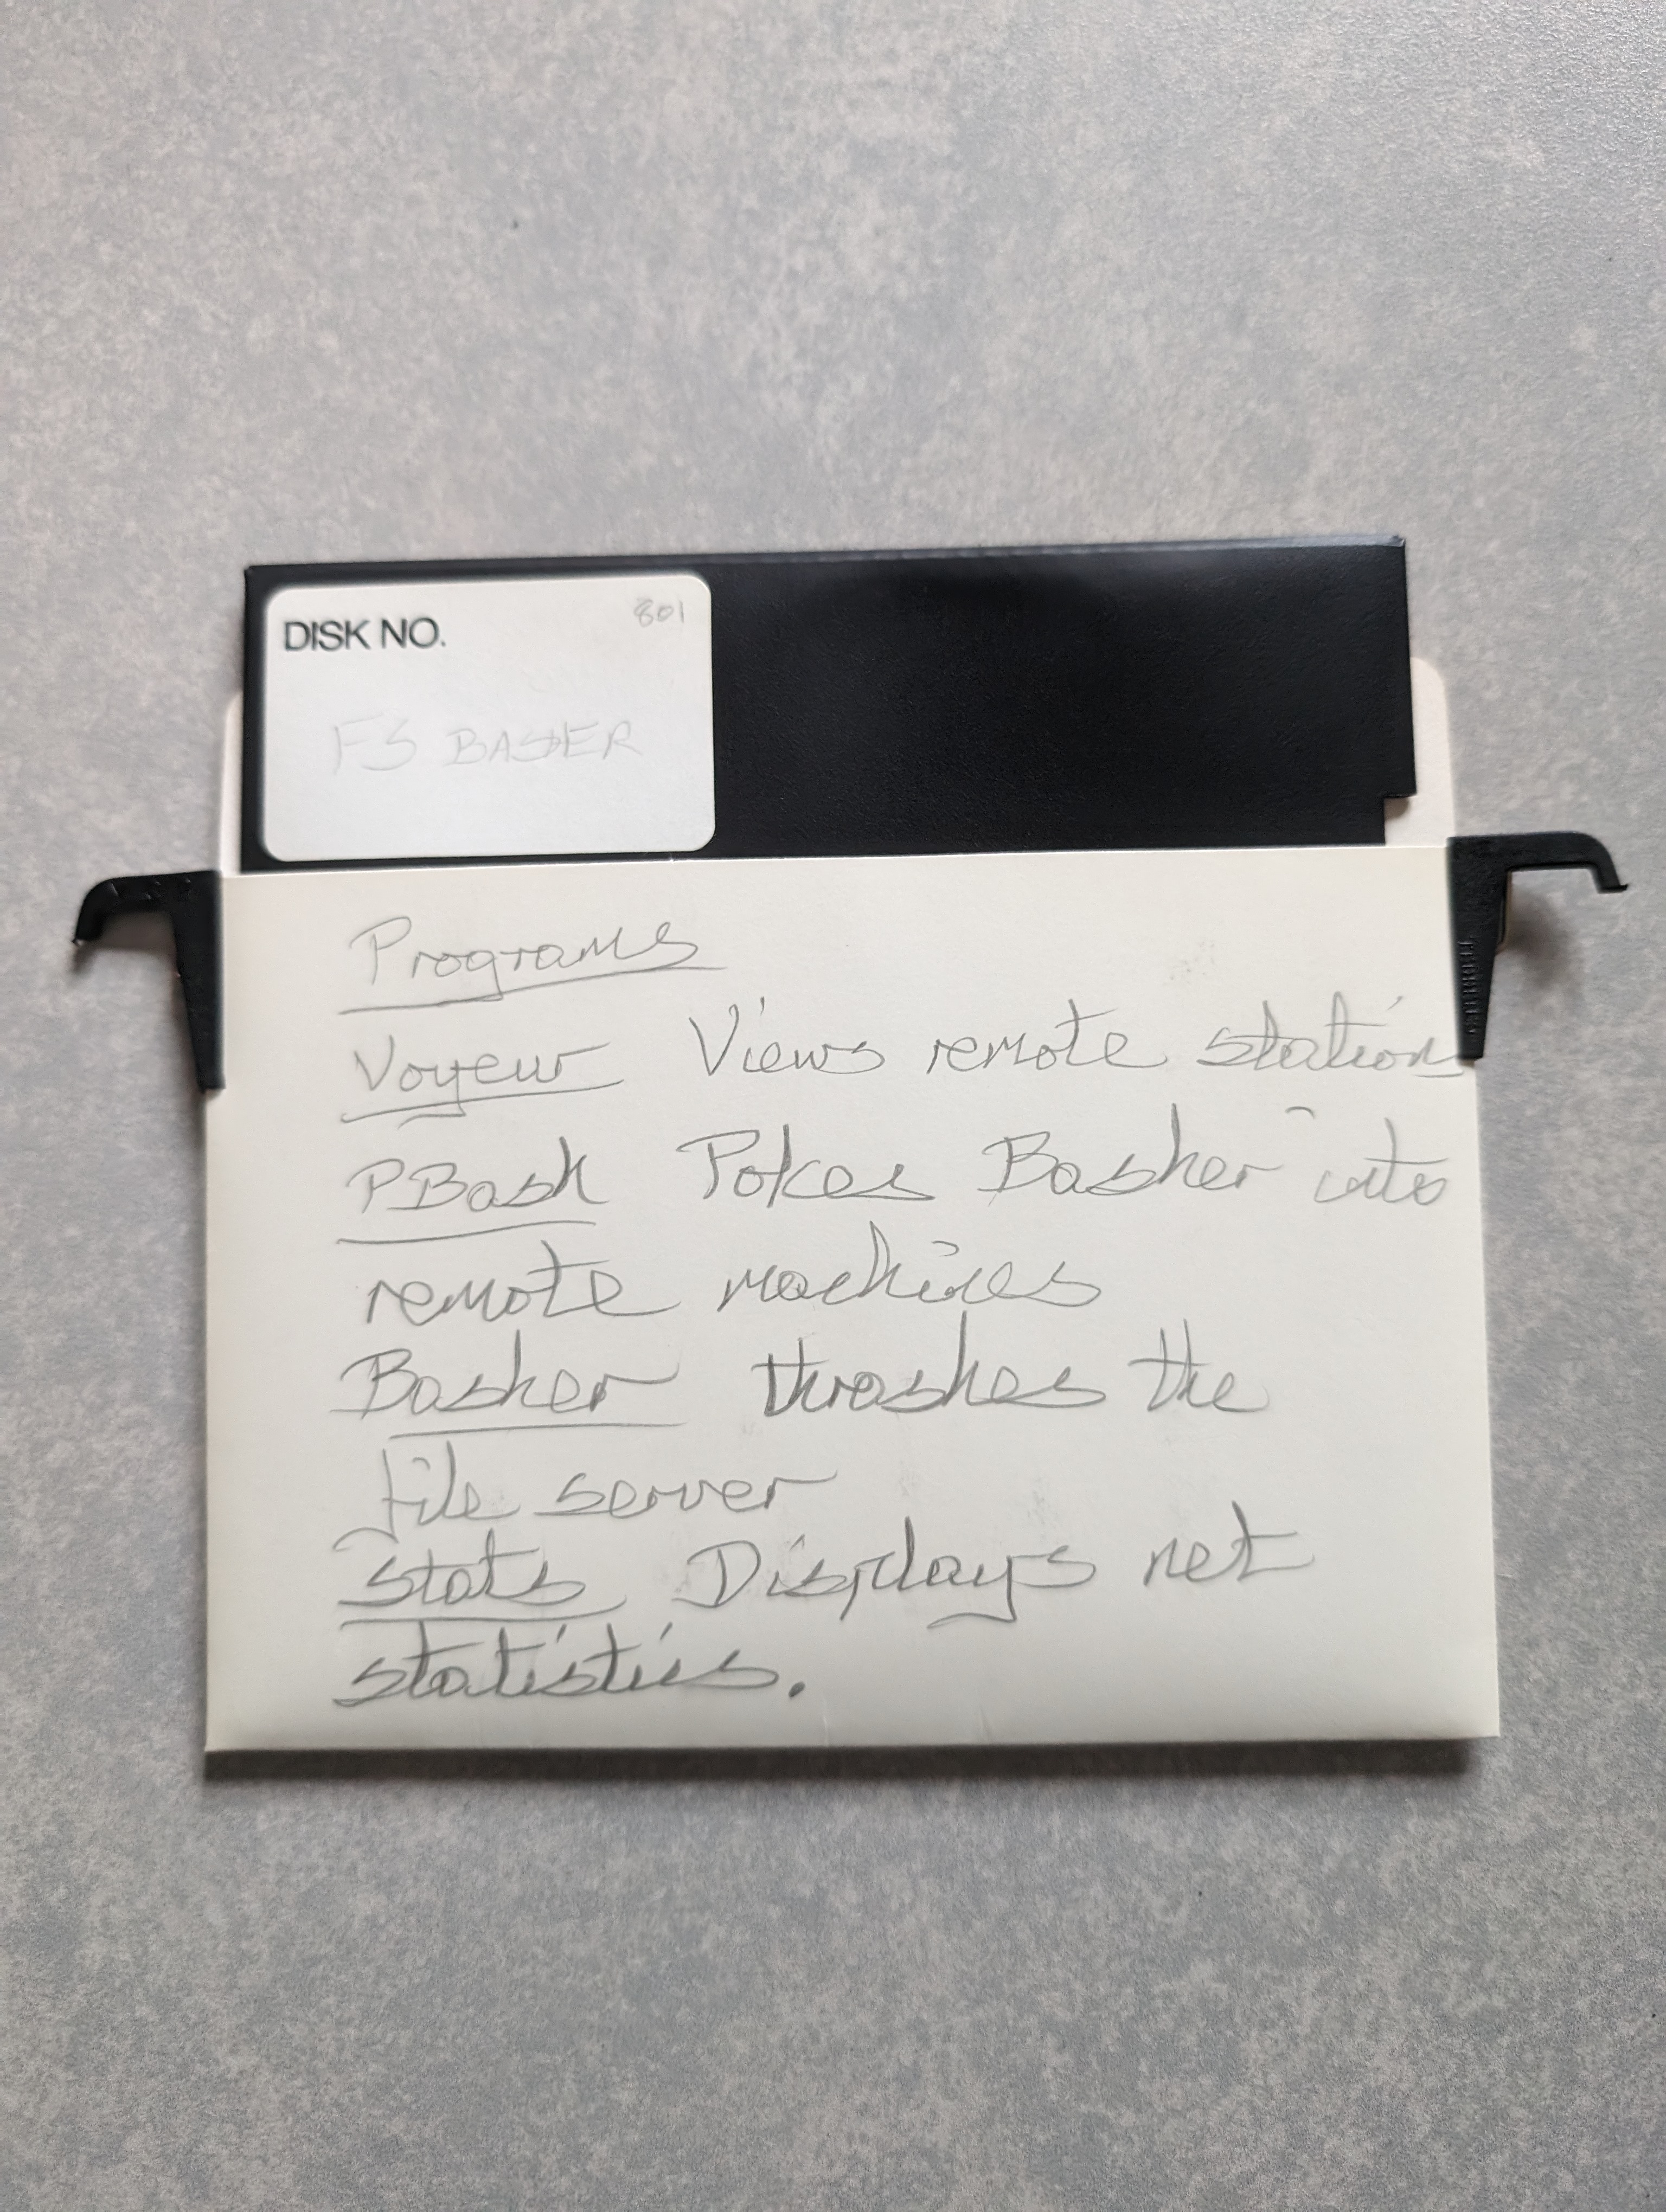 DISK NO. 801
FS BASHER
Programs
Voyeur Views remote stations
PBash Pokes Basher into
remote machines
Basher thrashes the
file server
Stats Displays net
statistics.